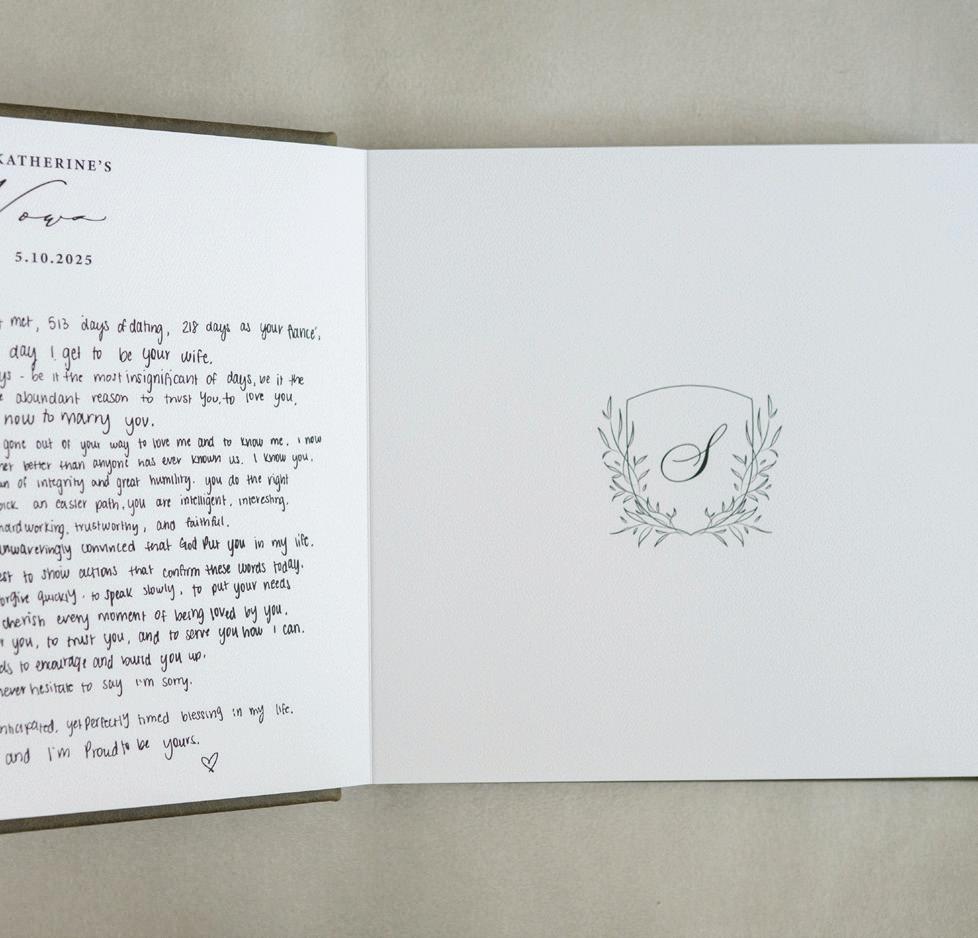 KATHERINE'S
Vows
5.10.2025
met, 513 days of dating, 218 days as your fiance,
day I get to be your wife.
ys - be it the most insignificant of days, be it the
abundant reason to trust you, to love you,
now to marry you.
gone out of your way to love me and to know me. I now
her better than anyone has ever known us. I know you.
an of integrity and great humility. you do the right
pick an easier path. you are intelligent, interesting,
hardworking, trustworthy, and faithful.
unwaveringly convinced that God put you in my life.
est to show actions that confirm these words today.
forgive quickly. to speak slowly, to put your needs
cherish every moment of being loved by you.
you, to trust you, and to serve you how I can.
ds to encourage and build you up.
never hesitate to say I'm sorry.
nticipated, yet perfectly timed blessing in my life.
and I'm proud to be yours.
S